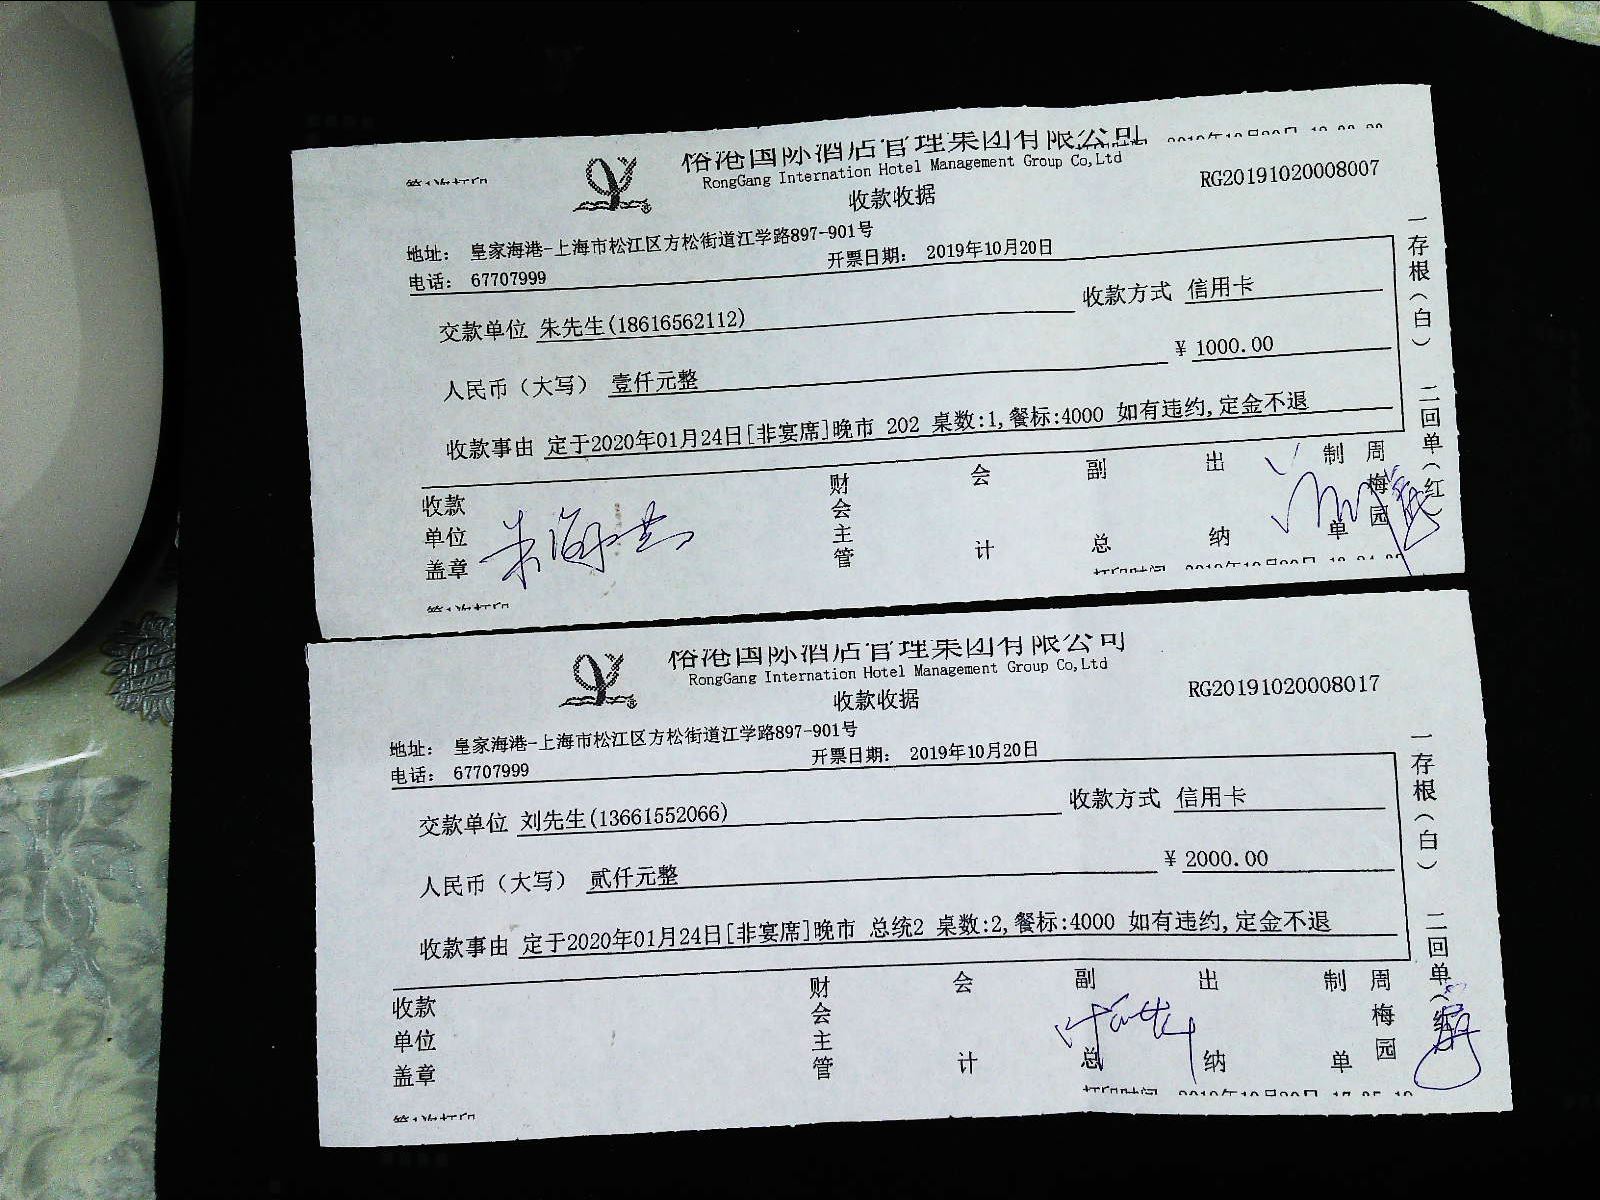 俗港国际酒店管理集团有限公司
RongGang Internation Hotel Management Group Co,Ltd
收款收据
RG20191020008007
地址： 皇家海港-上海市松江区方松街道江学路897-901号
电话： 67707999 开票日期： 2019年10月20日
交款单位 朱先生(18616562112) 收款方式 信用卡
人民币（大写） 壹仟元整 ￥ 1000.00
收款事由 定于2020年01月24日[非宴席]晚市 202 桌数:1,餐标:4000 如有违约,定金不退
收款单位盖章 财会主管 会计 副总 出纳 制单 周梅园
一存根（白） 二回单（红
第1次打印
俗港国际酒店管理集团有限公司
RongGang Internation Hotel Management Group Co,Ltd
收款收据
RG20191020008017
地址： 皇家海港-上海市松江区方松街道江学路897-901号
电话： 67707999 开票日期： 2019年10月20日
交款单位 刘先生(13661552066) 收款方式 信用卡
人民币（大写） 贰仟元整 ￥ 2000.00
收款事由 定于2020年01月24日[非宴席]晚市 总统2 桌数:2,餐标:4000 如有违约,定金不退
收款单位盖章 财会主管 会计 副总 出纳 制单 周梅园
一存根（白） 二回单（红
第1次打印